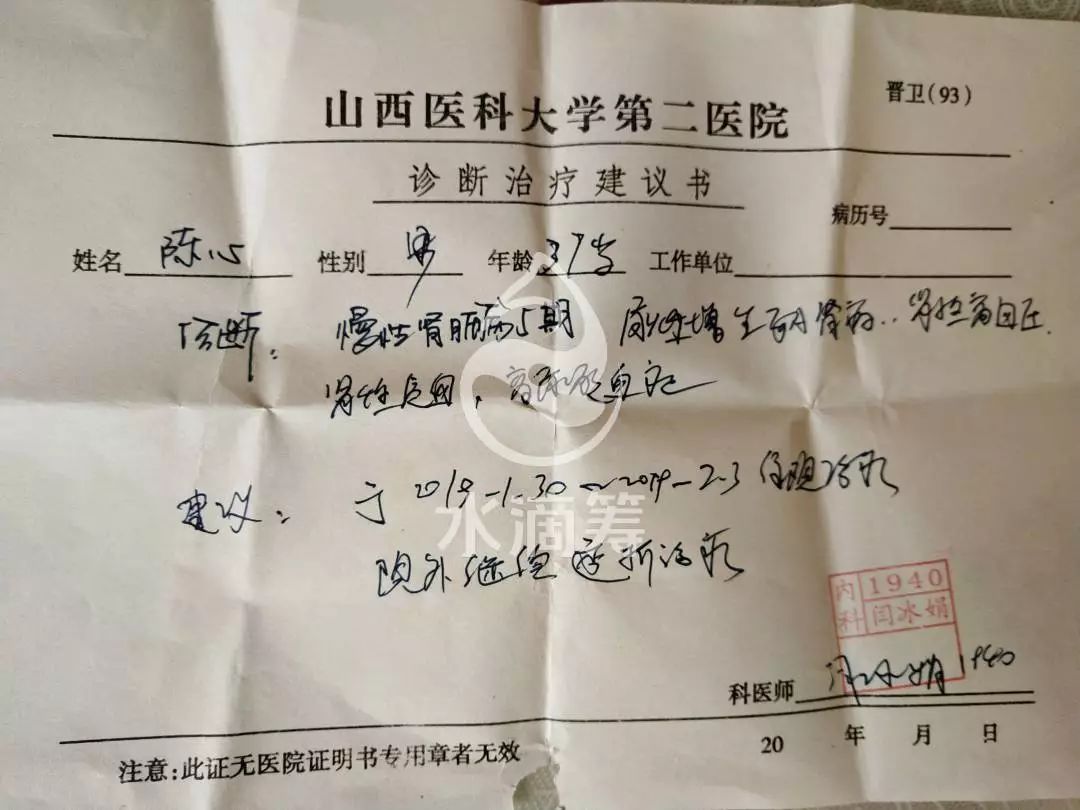 晋卫(93)
山西医科大学第二医院
诊断治疗建议书
病历号
姓名 陈心 性别 男 年龄 37岁 工作单位
诊断: 慢性肾脏病5期 增生 肾病 肾性高血压.
肾性贫血, 高 血症
建议: 于2019-1.30~2019-2-3住院治疗
水滴筹
院外继续透析治疗
内科 1940 闫冰娟
科医师 闫冰娟 1940
20 年 月 日
注意:此证无医院证明书专用章者无效